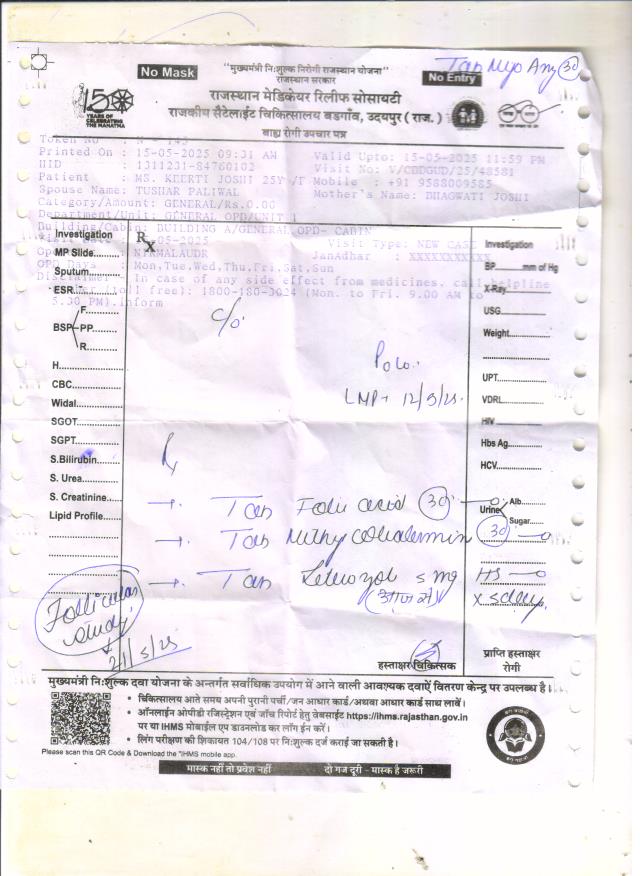 Tab Myo Any 30
No Mask
"मुख्यमंत्री निःशुल्क निरोगी राजस्थान योजना"
राजस्थान सरकार
No Entry
150
YEARS OF
CELEBRATING
THE MAHATMA
राजस्थान मेडिकेयर रिलीफ सोसायटी
राजकीय सैटेलाईट चिकित्सालय बडगाँव, उदयपुर (राज.)
बाह्य रोगी उपचार पत्र
Token No
Printed On : 15-05-2025 09:31 AM Valid Upto: 15-05-2025 11:59 PM
HID : 1311231-84760102 Visit No: V/CBDGUD/25/48581
Patient : MS. KEERTI JOSHI 25Y /F Mobile : +91 9588009585
Spouse Name: TUSHAR PALIWAL Mother's Name: BHAGWATI JOSHI
Category/Amount: GENERAL/Rs.0.00
Department/Unit: GENERAL OPD/UNIT 1
Building/Cabin: BUILDING A/GENERAL OPD- CABIN
-05-2025 Visit Type: NEW CASE
NIRMALAUDR JanAadhar : XXXXXXXXXXX
OPD Days : Mon,Tue,Wed,Thu,Fri,Sat,Sun
Disclaimer : In case of any side effect from medicines, call helpline
(toll free): 1800-180-3024 (Mon. to Fri. 9.00 AM to
5.30 PM).inform
Investigation
MP Slide
Sputum
ESR
BSP F
PP
R
H
CBC
Widal
SGOT
SGPT
S.Bilirubin
S. Urea
S. Creatinine
Lipid Profile
Rx
C/o
P0L0
LMP- 12/5/25
Rx
→ Tab Folic acid 30
→ Tab Methylcobalamin 30
→ Tab Letrozol 5 mg HS
(आज से) x 5 days
Follicular
study
21/5/25
Investigation
BP mm of Hg
X-Ray
USG
Weight
UPT
VDRL
HIV
Hbs Ag
HCV
Urine Alb
Sugar
हस्ताक्षर चिकित्सक
प्राप्ति हस्ताक्षर
रोगी
मुख्यमंत्री निःशुल्क दवा योजना के अन्तर्गत सर्वाधिक उपयोग में आने वाली आवश्यक दवाऐं वितरण केन्द्र पर उपलब्ध है।
• चिकित्सालय आते समय अपनी पुरानी पर्ची/जन आधार कार्ड/अथवा आधार कार्ड साथ लावें।
• ऑनलाईन ओपीडी रजिस्ट्रेशन एवं जाँच रिपोर्ट हेतु वेबसाईट https://ihms.rajasthan.gov.in
पर या IHMS मोबाईल एप डाउनलोड कर लॉग ईन करें।
• लिंग परीक्षण की शिकायत 104/108 पर निःशुल्क दर्ज कराई जा सकती है।
Please scan this QR Code & Download the "IHMS mobile app.
मास्क नहीं तो प्रवेश नहीं दो गज दूरी - मास्क है जरूरी